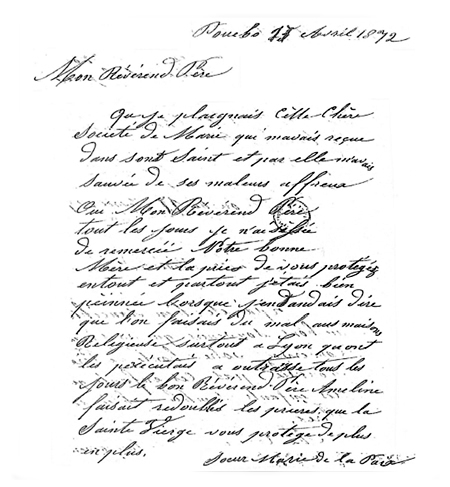 Pouebo 27 Avril 1872
Mon Révérend Père
Que je plaignais Cette Chère
Societé de Marie qui mavais reçue
dans sont Saint et par elle m'avais
sauvée de ses maleurs affreux
Oui Mon Révérend Père
tout les Jours je n'ai
de remercié Notre bonne
Mère et la priée de vous protégéz
entout et partout j'etais bien
peinnée lorsque j'endandais dire
que l'on faisais du mal aus maisons
Réligieuse surtout a Lyon qu'ont
les perecutais a outrasse tous les
Jours le bon Révérend Père Ameline
faisait redoublés les prieres que la
Sainte Vierge vous protège de plus
en plus.
Soeur Marie de la Paix